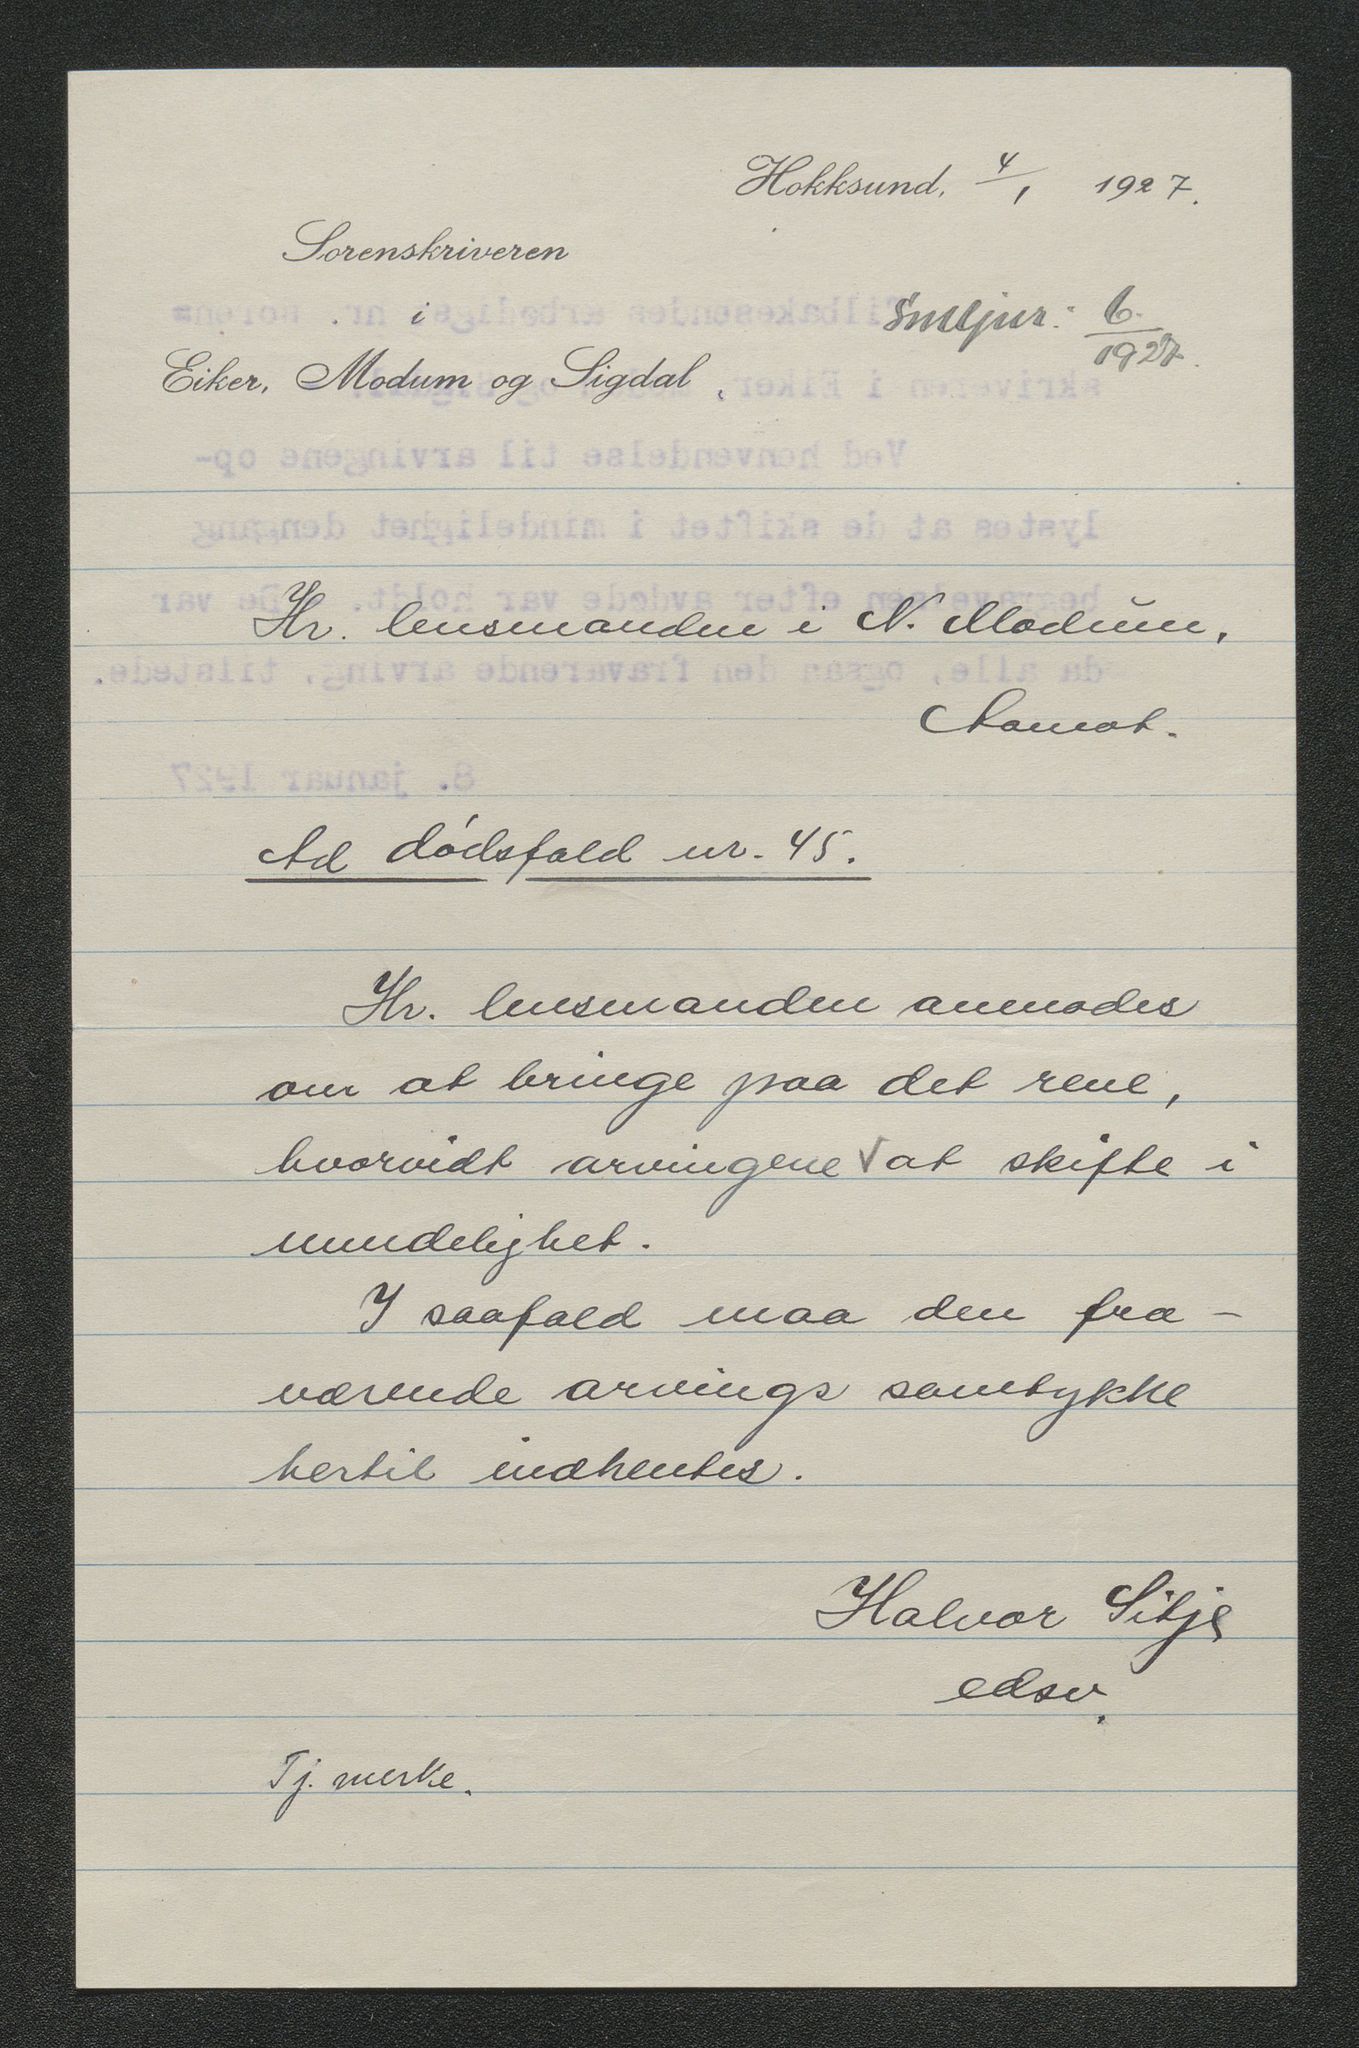 Hokksund, 4/1 1927.
Sorenskriveren
i
Eiker, Modum og Sigdal,
Smljnr: 6/1927.
Hr. lensmanden i N. Modum,
Aamot.
Ad dødsfald nr. 45.
Hr. lensmanden anmodes
om at bringe paa det rene,
hvorvidt arvingene √ at skifte i
mindelighet.
I saafald maa den fra-
værende arvings samtykke
hertil indhentes.
Halvor Sitje
edsv.
Tj. merke.
Tilbakesendes ærbødigst hr. sorens=
skriveren i Eiker, Modum og Sigdal.
Ved henvendelse til arvingene op-
lystes at de skiftet i mindelighet dengang
begravelsen efter avdøde var holdt. De var
da alle, ogsaa den fraværende arving, tilstede.
8. januar 1927